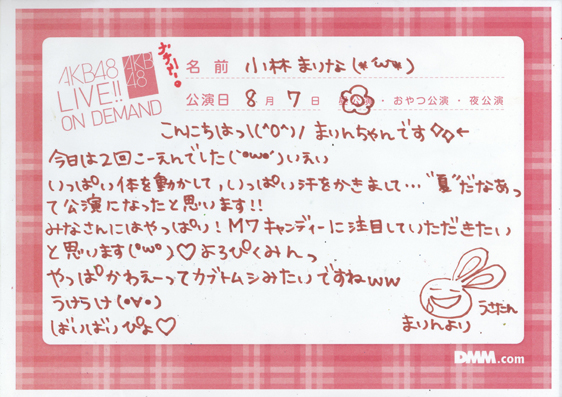 AKB48
LIVE!!
ON DEMAND
AKB
48
名前 小林 まりな(*´ω`*)
公演日 8月7日 昼公演・おやつ公演・夜公演
こんにちはっ\(^O^)/ まりんちゃんです◇◇←
今日は2回こーえんでした(`・ω・´)いえい
いっぱい体を動かして,いっぱい汗をかきまして…"夏"だなあっ
て公演になったと思います!!
みなさんにはやっぱい!M7キャンディーに注目していただきたい
と思います(°ω°)♡よろぴくみんっ
やっぱかわえーってカブトムシみたいですねww
うけらけ(•∀•)
ばいばいぴよ♡
うさたん
まりんより
DMM.com